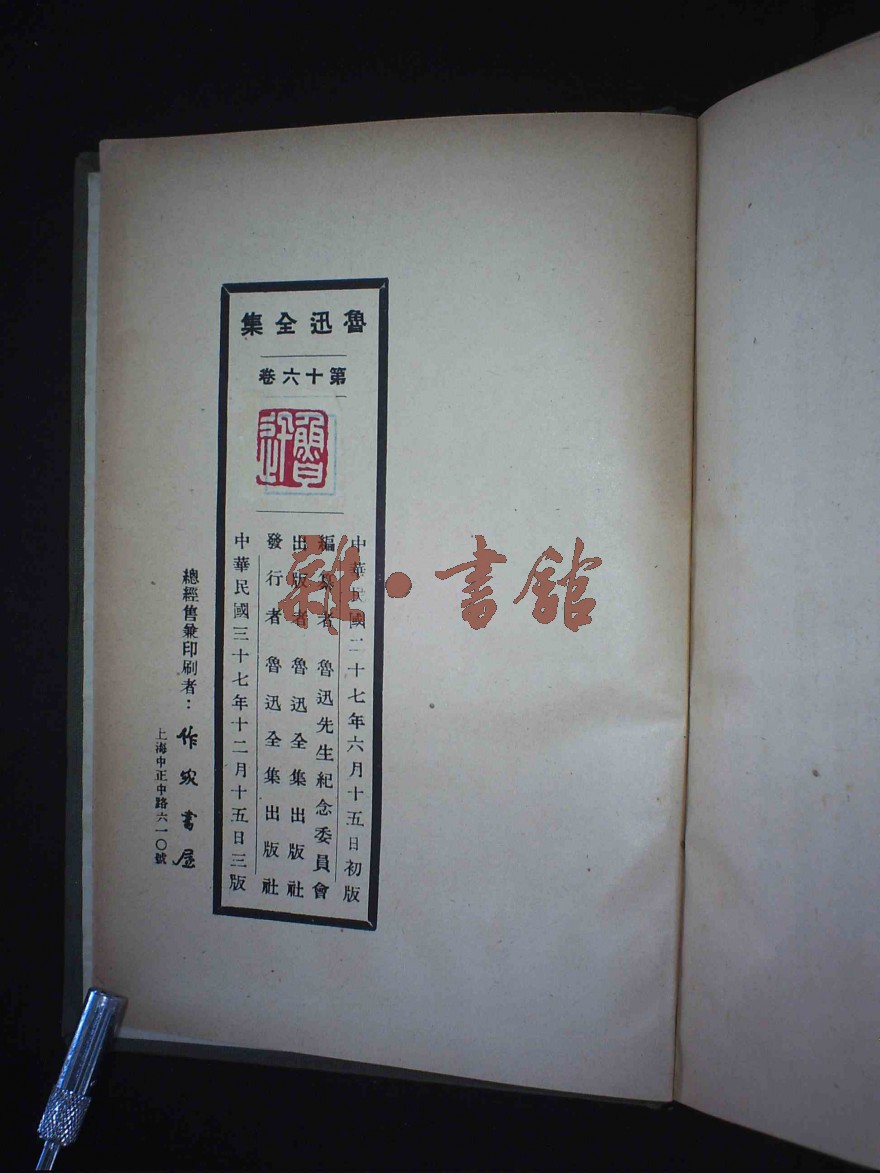 魯迅全集
第十六卷
魯迅
中華民國二十七年六月十五日初版
編纂者 魯迅先生紀念委員會
出版者 魯迅全集出版社
發行者 魯迅全集出版社
中華民國三十七年十二月十五日三版
總經售兼印刷者：作家書屋
上海中正中路六一〇號
雜·書館